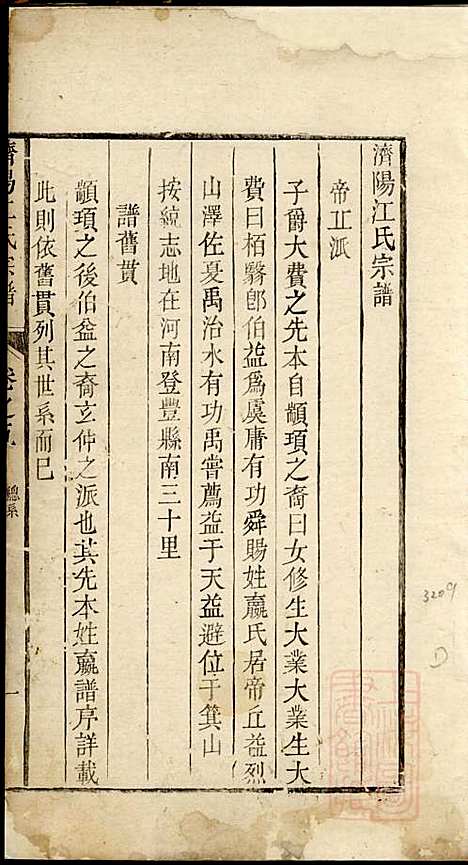 濟陽江氏宗譜
帝丘派
子爵大費之先本自顓頊之裔曰女修生大業大業生大
費曰栢翳郎伯益爲虞庸有功舜賜姓嬴氏居帝丘益烈
山澤佐夏禹治水有功禹嘗薦益于天益避位于箕山
按統志地在河南登豐縣南三十里
譜舊貫
顓頊之後伯益之裔玄仲之派也其先本姓嬴譜序詳載
此則依舊貫列其世系而已
濟陽江氏宗譜
卷之
總系
一
3209
D